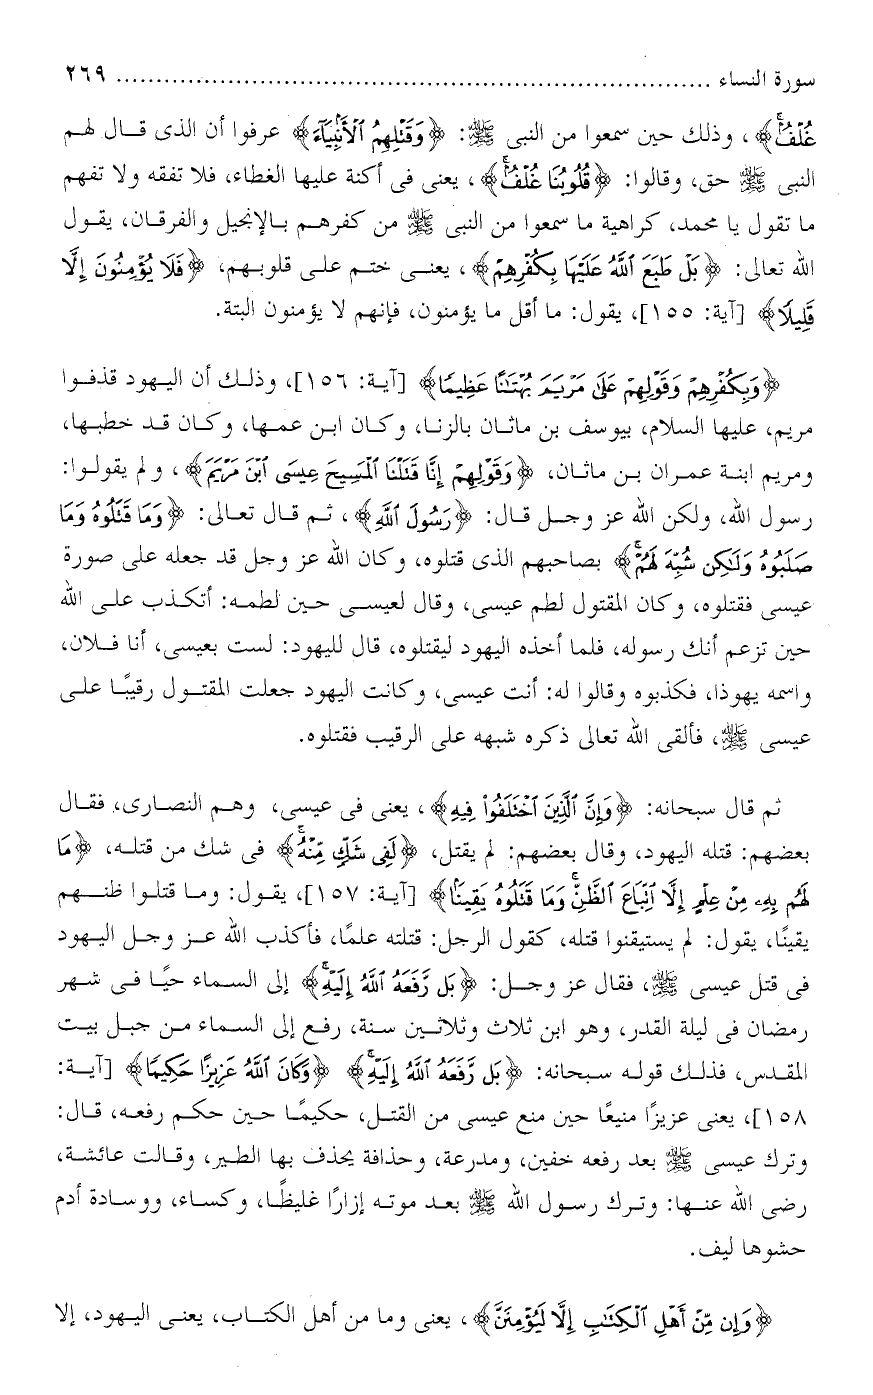 سورة النساء ........................................................................ ٢٦٩
غُلْفٌۚ﴾، وذلك حين سمعوا من النبى ﷺ: ﴿وَقَتْلِهِمُ ٱلْأَنۢبِيَآءَ﴾ عرفوا أن الذى قال لهم
النبى ﷺ حق، وقالوا: ﴿قُلُوبُنَا غُلْفٌۚ﴾، يعنى فى أكنة عليها الغطاء، فلا تفقه ولا تفهم
ما تقول يا محمد، كراهية ما سمعوا من النبى ﷺ من كفرهم بالإنجيل والفرقان، يقول
الله تعالى: ﴿بَلْ طَبَعَ ٱللَّهُ عَلَيْهَا بِكُفْرِهِمْ﴾، يعنى ختم على قلوبهم، ﴿فَلَا يُؤْمِنُونَ إِلَّا
قَلِيلًا﴾ [آية: ١٥٥]، يقول: ما أقل ما يؤمنون، فإنهم لا يؤمنون البتة.
﴿وَبِكُفْرِهِمْ وَقَوْلِهِمْ عَلَىٰ مَرْيَمَ بُهْتَٰنًا عَظِيمًا﴾ [آية: ١٥٦]، وذلك أن اليهود قذفوا
مريم، عليها السلام، بيوسف بن ماثان بالزنا، وكان ابن عمها، وكان قد خطبها،
ومريم ابنة عمران بن ماثان، ﴿وَقَوْلِهِمْ إِنَّا قَتَلْنَا ٱلْمَسِيحَ عِيسَى ٱبْنَ مَرْيَمَ﴾، ولم يقولوا:
رسول الله، ولكن الله عز وجل قال: ﴿رَسُولَ ٱللَّهِ﴾، ثم قال تعالى: ﴿وَمَا قَتَلُوهُ وَمَا
صَلَبُوهُ وَلَٰكِن شُبِّهَ لَهُمْۚ﴾ بصاحبهم الذى قتلوه، وكان الله عز وجل قد جعله على صورة
عيسى فقتلوه، وكان المقتول لطم عيسى، وقال لعيسى حين لطمه: أتكذب على الله
حين تزعم أنك رسوله، فلما أخذه اليهود ليقتلوه، قال لليهود: لست بعيسى، أنا فلان،
واسمه يهوذا، فكذبوه وقالوا له: أنت عيسى، وكانت اليهود جعلت المقتول رقيبًا على
عيسى ﷺ، فألقى الله تعالى ذكره شبهه على الرقيب فقتلوه.
ثم قال سبحانه: ﴿وَإِنَّ ٱلَّذِينَ ٱخْتَلَفُوا۟ فِيهِ﴾، يعنى فى عيسى، وهم النصارى، فقال
بعضهم: قتله اليهود، وقال بعضهم: لم يقتل، ﴿لَفِى شَكٍّ مِّنْهُۚ﴾ فى شك من قتله، ﴿مَا
لَهُم بِهِۦ مِنْ عِلْمٍ إِلَّا ٱتِّبَاعَ ٱلظَّنِّۚ وَمَا قَتَلُوهُ يَقِينًۢا﴾ [آية: ١٥٧]، يقول: وما قتلوا ظنهم
يقينًا، يقول: لم يستيقنوا قتله، كقول الرجل: قتلته علمًا، فأكذب الله عز وجل اليهود
فى قتل عيسى ﷺ، فقال عز وجل: ﴿بَل رَّفَعَهُ ٱللَّهُ إِلَيْهِۚ﴾ إلى السماء حيًا فى شهر
رمضان فى ليلة القدر، وهو ابن ثلاث وثلاثين سنة، رفع إلى السماء من جبل بيت
المقدس، فذلك قوله سبحانه: ﴿بَل رَّفَعَهُ ٱللَّهُ إِلَيْهِۚ﴾ ﴿وَكَانَ ٱللَّهُ عَزِيزًا حَكِيمًا﴾ [آية:
١٥٨]، يعنى عزيزًا منيعًا حين منع عيسى من القتل، حكيمًا حين حكم رفعه، قال:
وترك عيسى ﷺ بعد رفعه خفين، ومدرعة، وحذافة يحذف بها الطير، وقالت عائشة،
رضى الله عنها: وترك رسول الله ﷺ بعد موته إزارًا غليظًا، وكساء، ووسادة أدم
حشوها ليف.
﴿وَإِن مِّنْ أَهْلِ ٱلْكِتَٰبِ إِلَّا لَيُؤْمِنَنَّ﴾، يعنى وما من أهل الكتاب، يعنى اليهود، إلا